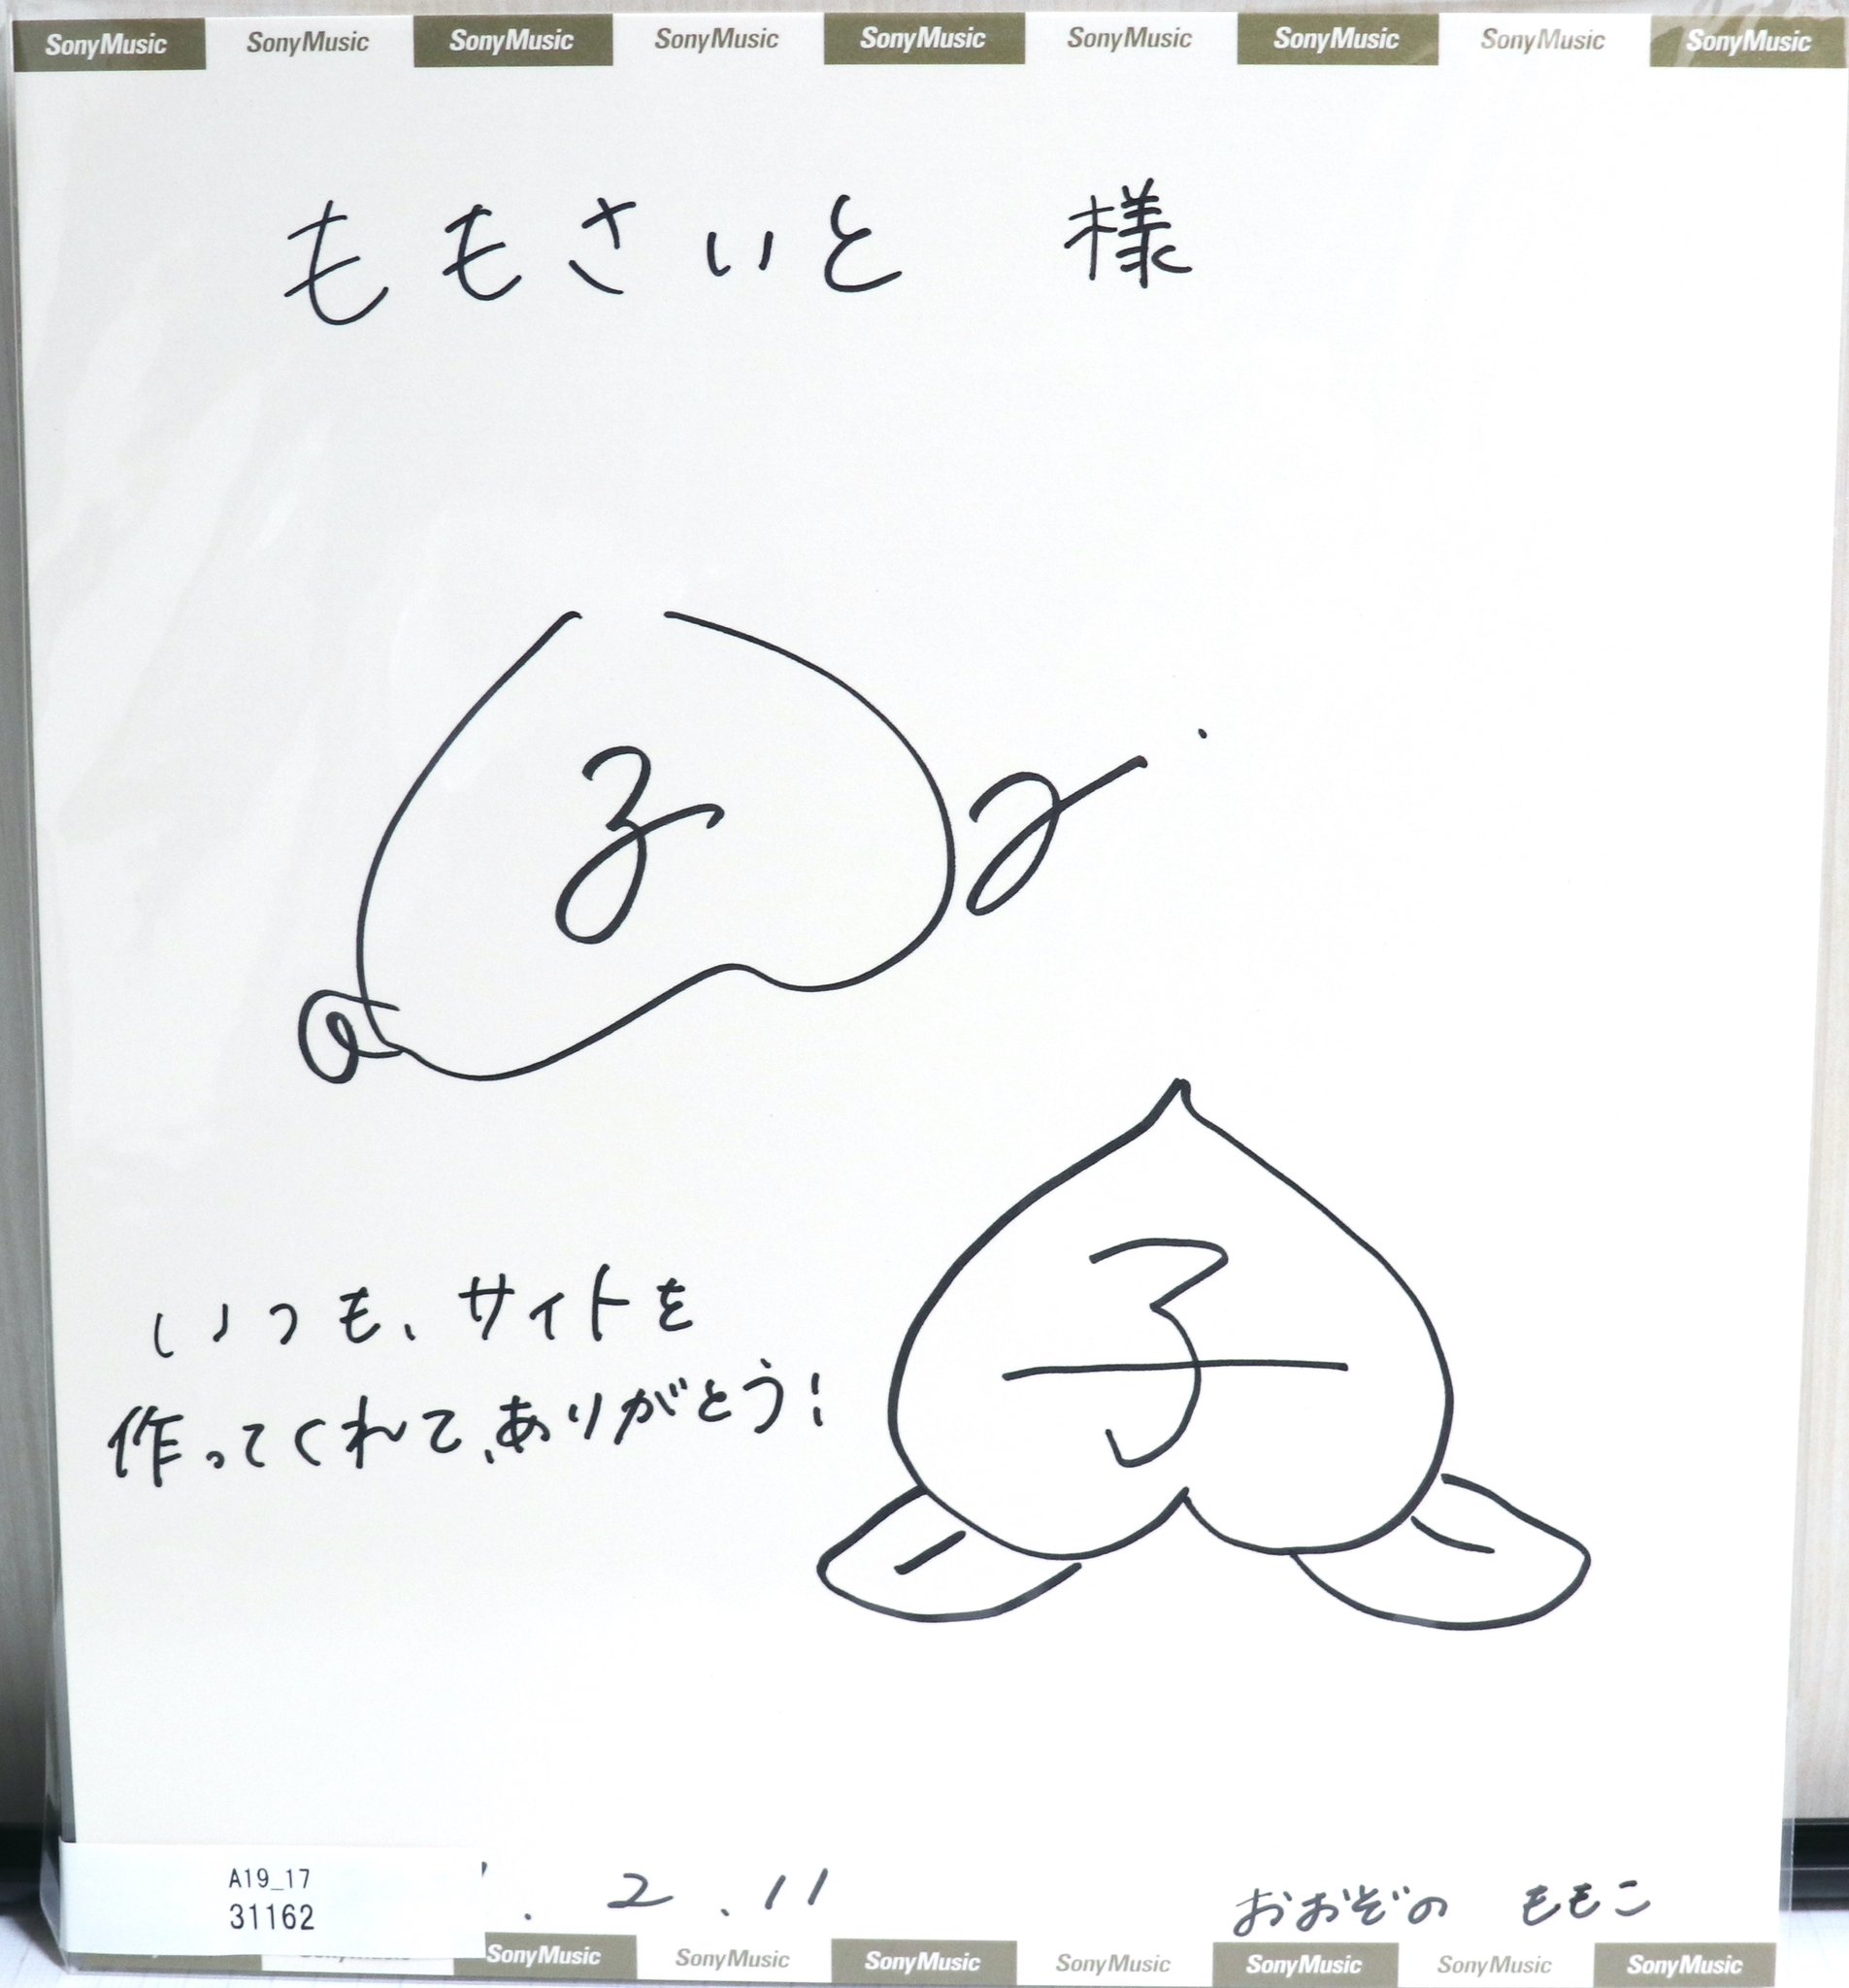 SonyMusic SonyMusic SonyMusic SonyMusic SonyMusic SonyMusic SonyMusic SonyMusic SonyMusic
ももさいと 様
子
いつも、サイトを
作ってくれて、ありがとう!
A19_17
31162
. 2 . 11
おおぞの ももこ
SonyMusic SonyMusic SonyMusic SonyMusic SonyMusic SonyMusic SonyMusic